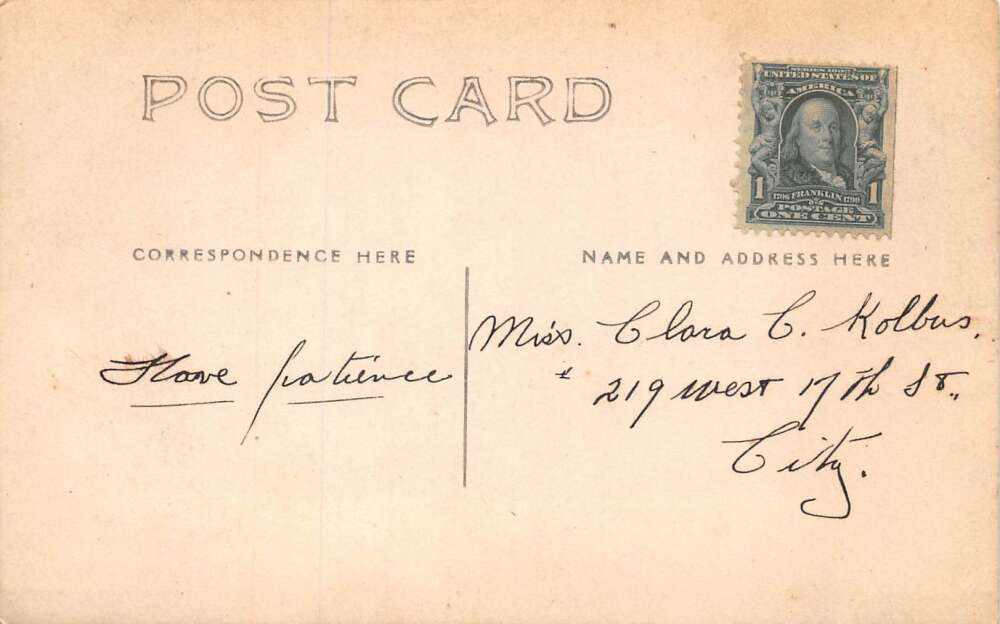 POST CARD
SERIES 1902
UNITED STATES OF
AMERICA
1 1
1706 FRANKLIN 1790
POSTAGE
ONE CENT
CORRESPONDENCE HERE
Have patience
NAME AND ADDRESS HERE
Miss. Clara C. Kolbus,
219 west 17th St.,
City.